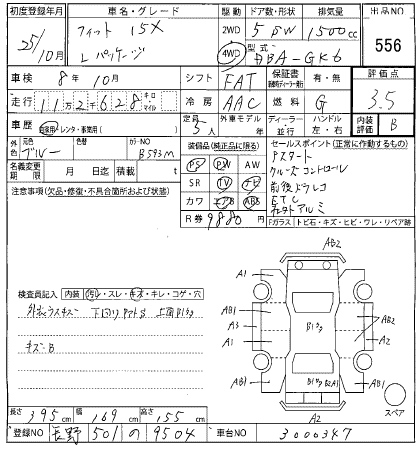 初度登録年月 車名・グレード 駆動 ドア数・形状 排気量 出品NO
25/10月 フィット 15X 2WD 5 DW 1500cc 556
Lパッケージ 4WD 型式 DBA-GK6
車検 8年10月 シフト FAT 保証書 有・無 評価点
走行 112628 キロ マイル 冷房 AAC 燃料 G 3.5
車歴 自家用・レンタ・事業用( ) 定員 5人 外車モデル 年 ディーラー 並行 ハンドル 左・右 内装評価 B
外色 元色 ブルー 色替 カラーNO B593M
装備品(純正品に限る) セールスポイント(正常に作動するもの)
名義変更期限 月 日迄 積載 t
PS PW AW Pスタート
SR TV ナビ クルーズコントロール
注意事項(欠品・修復・不具合箇所および状態)
カワ エアB ABS 前後ドラレコ
ETC
R券 9880円 社外アルミ
Fガラス トビ石・キズ・ヒビ・ワレ・リペア跡
AB2
A1
検査員記入 内装 スレ・キズ・キレ・コゲ・穴
AB1 AB1
A3 B1 AB2
A1 A2
キズ・B
AB1 B1 B2A1 AB1
スペア
A2
長さ 395cm 幅 169cm 高さ 155cm
登録NO 長野 501 の 9504 車台NO 3000347